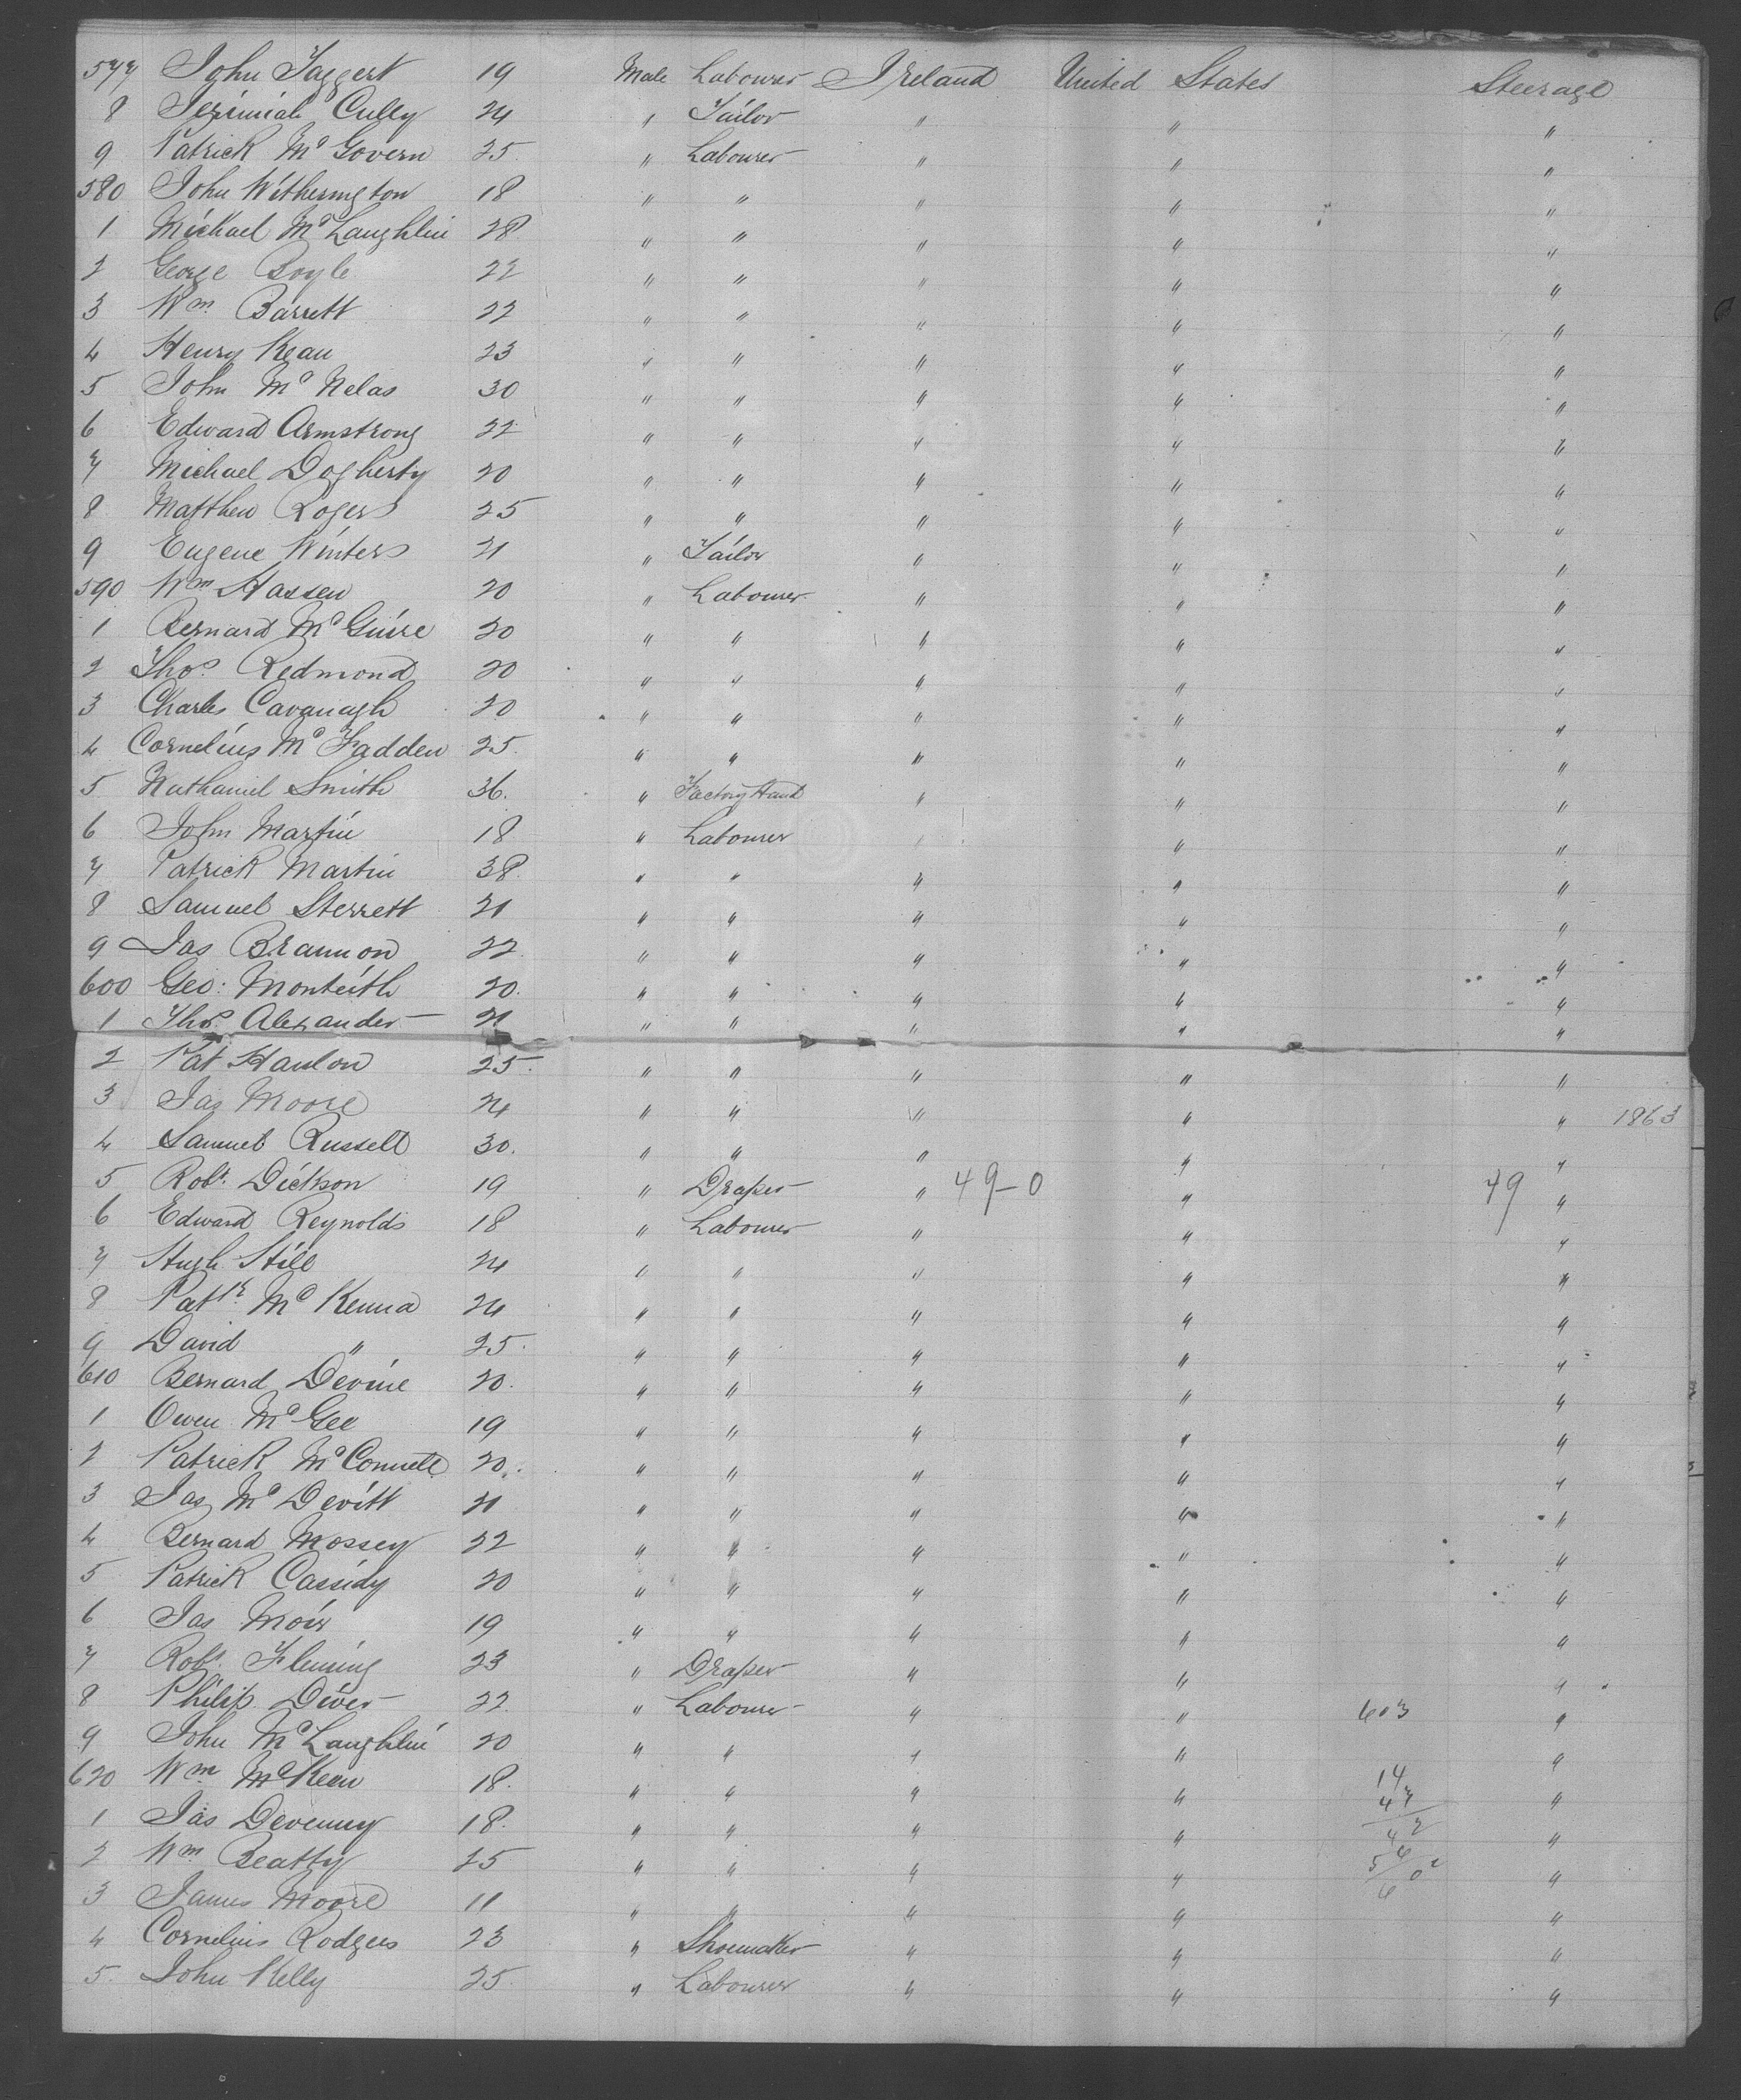 577 John Taggert 19 Male Labourer Ireland United States Steerage
8 Jerimiah Culley 24 " Tailor " " "
9 Patrick Mc Govern 25 " Labourer " " "
580 John Witherington 18 " " " " "
1 Michael Mc Laughlin 28 " " " " "
2 George Boyle 22 " " " " "
3 Wm. Barrett 22 " " " " "
4 Henry Kean 23 " " " " "
5 John Mc Nelas 30 " " " " "
6 Edward Armstrong 22 " " " " "
7 Michael Dogherty 20 " " " " "
8 Matthew Rogers 25 " " " " "
9 Eugene Winters 21 " Tailor " " "
590 Wm Hassen 20 " Labourer " " "
1 Bernard Mc Guire 20 " " " " "
2 Thos. Redmond 20 " " " " "
3 Charles Cavanagh 20 " " " " "
4 Cornelius Mc Fadden 25 " " " " "
5 Nathaniel Smith 36. " Factory Hand " " "
6 John Martin 18 " Labourer " " "
7 Patrick Martin 38 " " " " "
8 Samuel Sterrett 21 " " " " "
9 Jas Brannon 22 " " " " "
600 Geo: Monteith 20. " " " " "
1 Thos. Alexander 21 " " " " "
2 Pat Hanlon 25. " " " " "
3 Jas Moore 24 " " " " " 1863
4 Samuel Russell 30. " " " " "
5 Robt. Dickson 19 " Draper " 49-0 " 49 "
6 Edward Reynolds 18 " Labourer " " "
7 Hugh Hill 24 " " " " "
8 Patk. Mc Kenna 24 " " " " "
9 David " 25. " " " " "
610 Bernard Devine 20. " " " " "
1 Owen Mc Gee 19 " " " " "
2 Patrick Mc Connell 20. " " " " "
3 Jas Mc Devitt 21 " " " " "
4 Bernard Mossey 22 " " " " "
5 Patrick Cassidy 20 " " " " "
6 Jas Moir 19 " " " " "
7 Robt. Fleming 23 " Draper " " "
8 Philip Diver 22. " Labourer " " 603 "
9 John Mc Laughlin 20 " " " " "
620 Wm Mc Keen 18. " " " " 14 "
47
1 Jas Devenny 18. " " " " "
2 Wm Beatty 25 " " " " "
3 James Moore 11 " " " " "
4 Cornelius Rodgers 23 " Shoemaker " " "
5. John Kelly 25. " Labourer " " "